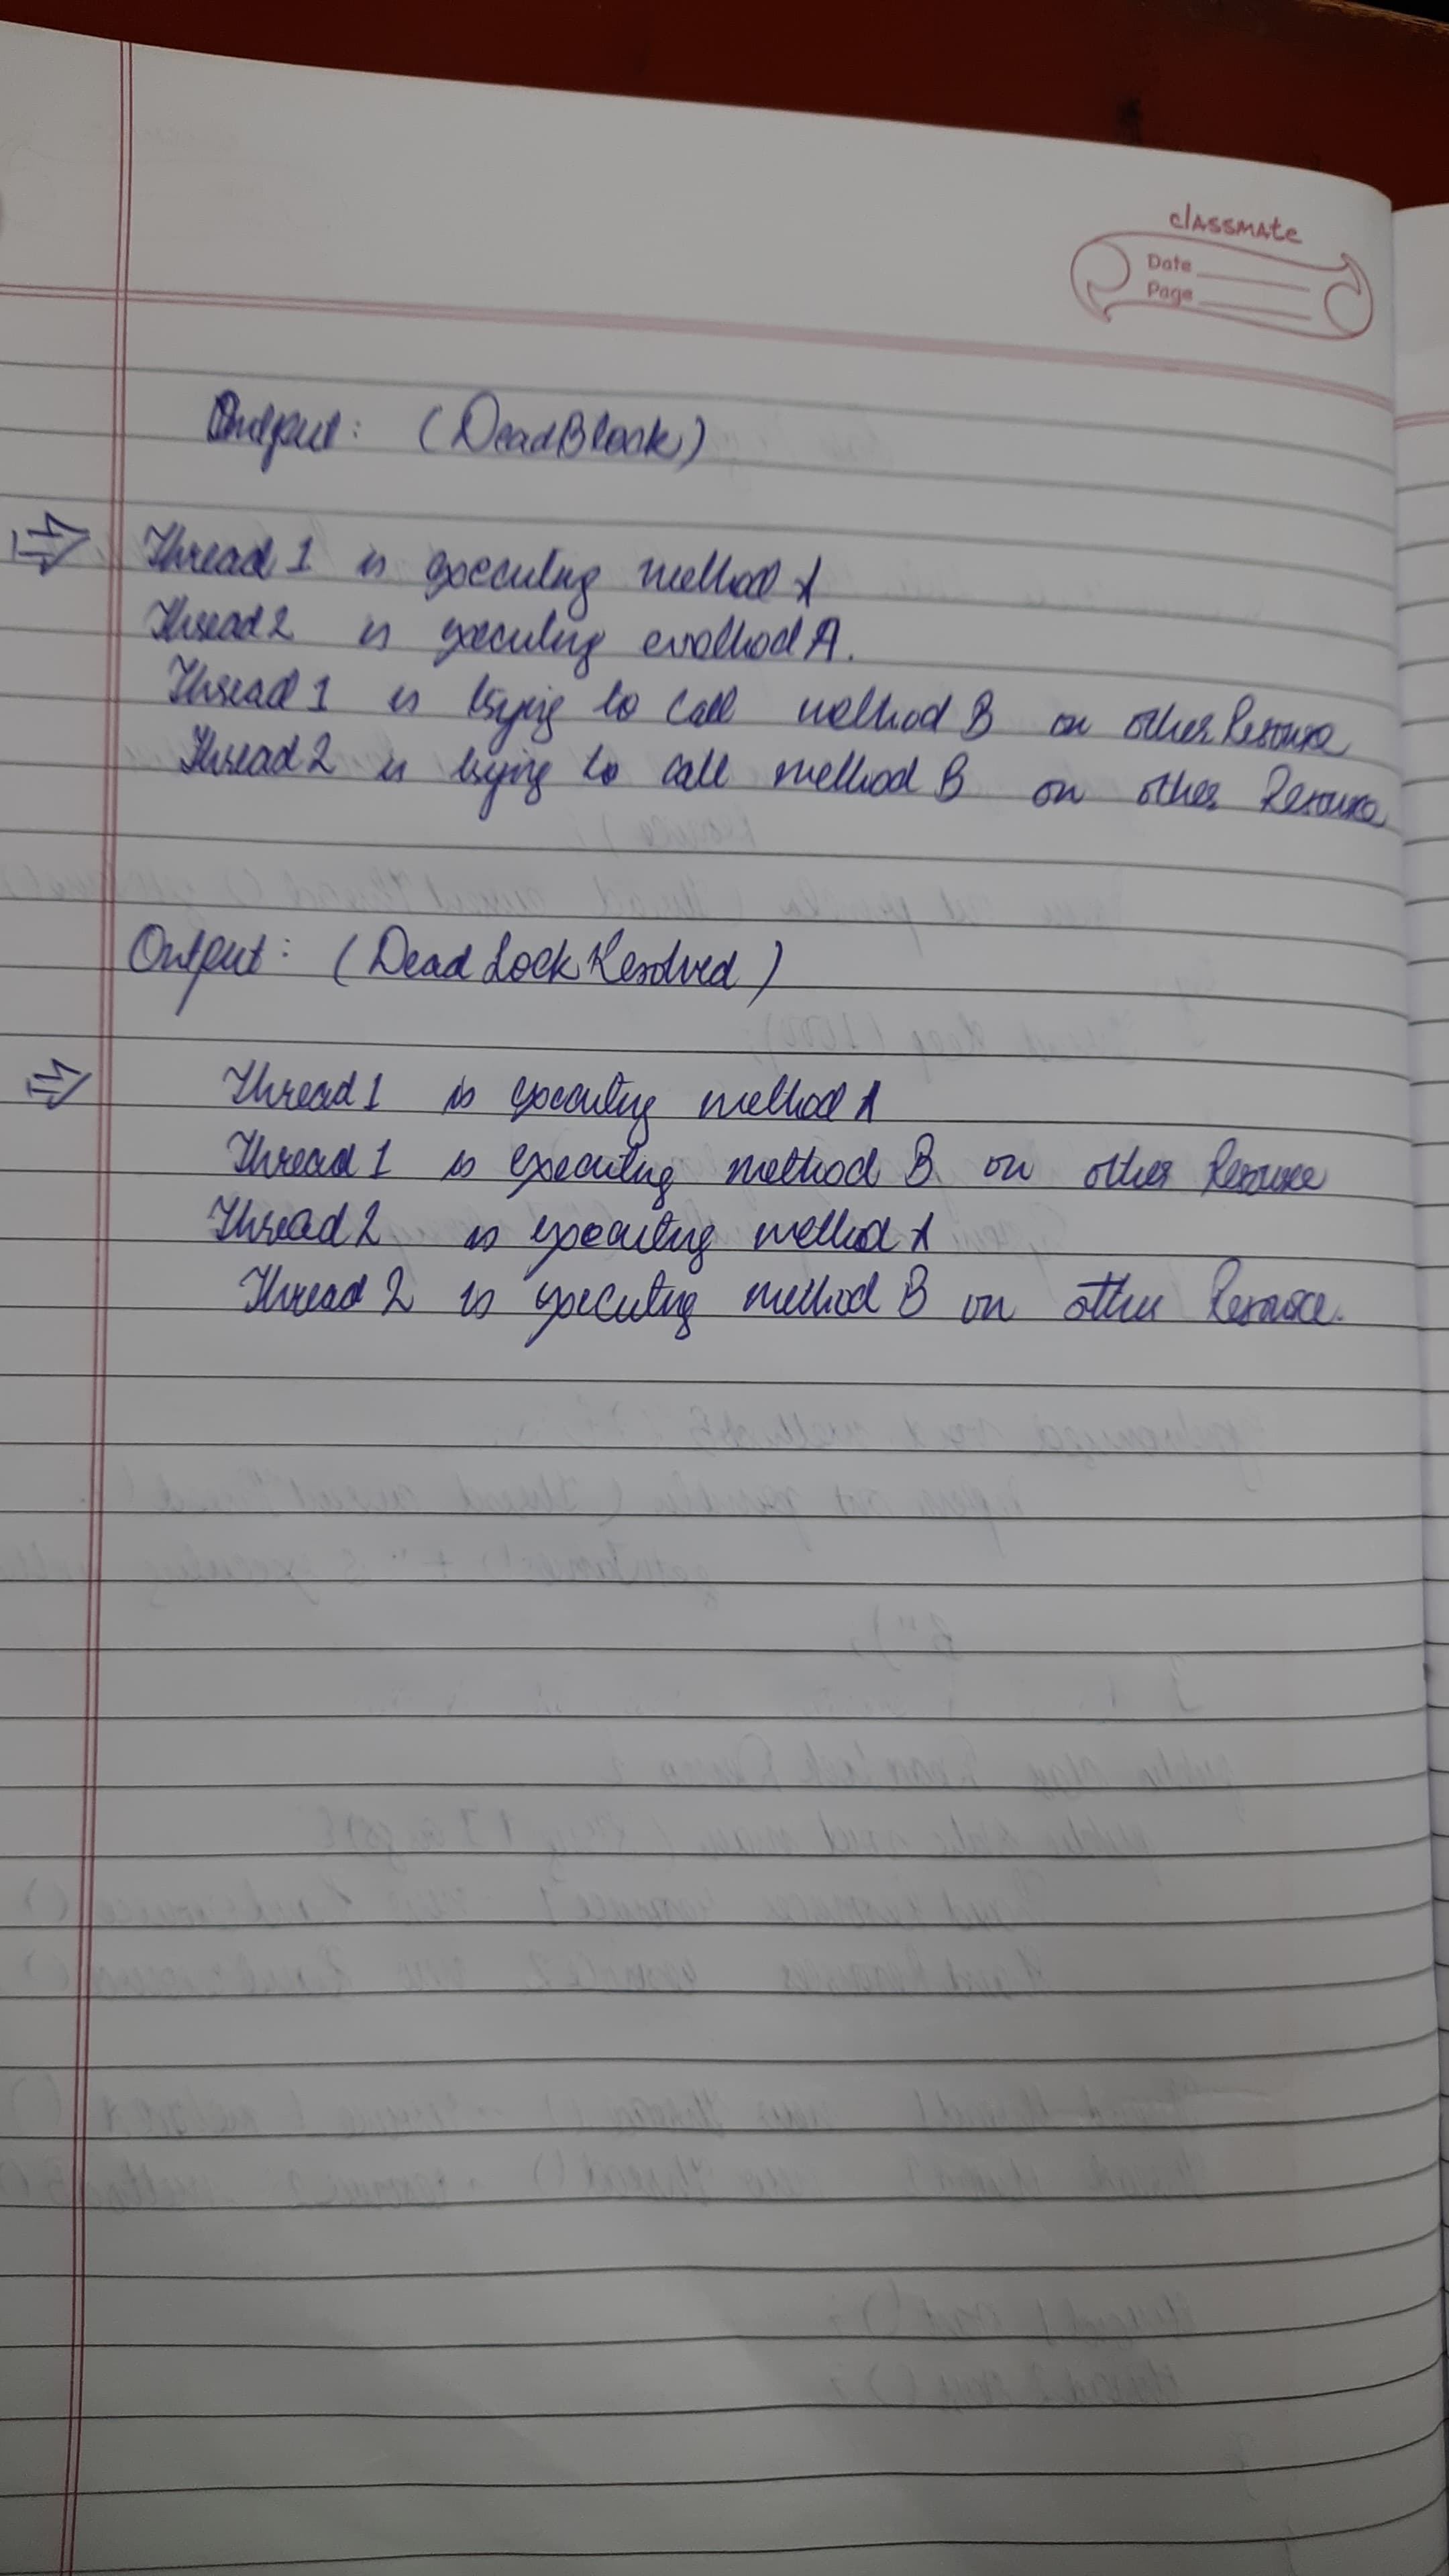 classmate
Date
Page
Output: (DeadBlock)
Thread 1 is executing method A
Thread 2 is executing method A.
Thread 1 is trying to call method B on other Resource
Thread 2 is trying to call method B on other Resource
Output: (Dead Lock Resolved)
Thread 1 is executing method A
Thread 1 is executing method B on other Resource
Thread 2 is executing method A
Thread 2 is executing method B on other Resource.